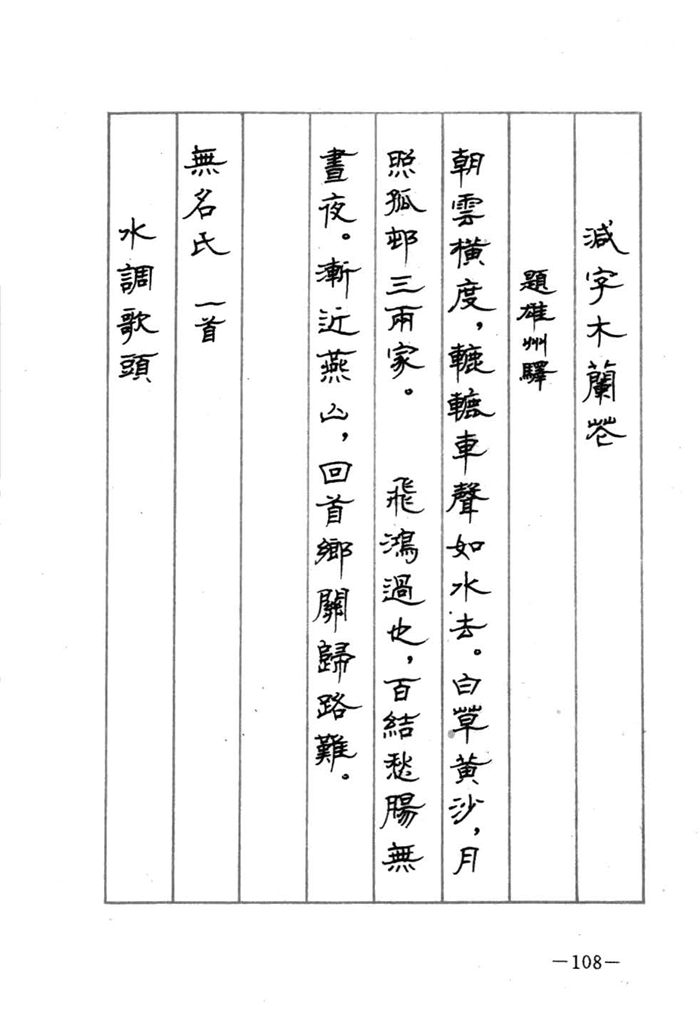 減字木蘭花
題雄州驛
朝雲橫度，轆轆車聲如水去。白草黃沙，月
照孤邨三兩家。　飛鴻過也，百結愁腸無
晝夜。漸近燕山，回首鄉關歸路難。
無名氏　一首
水調歌頭
—108—